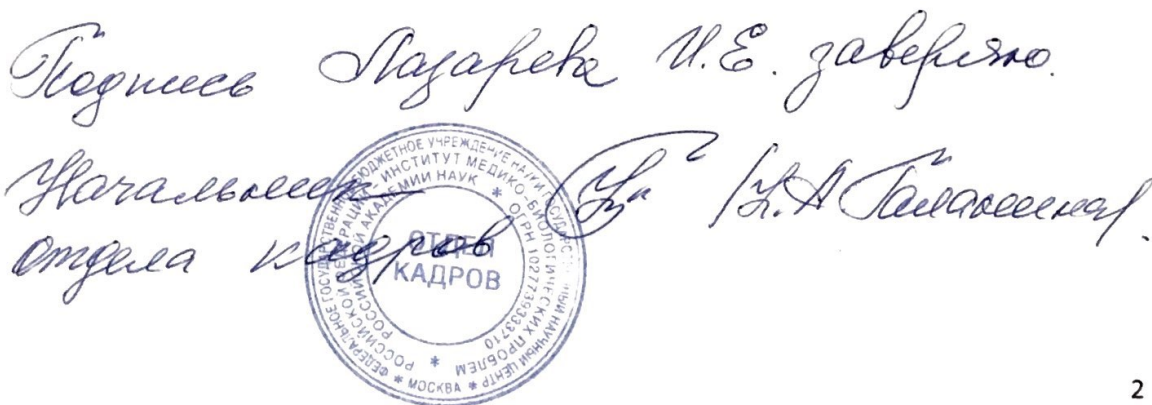 Подпись Лазарева И.Е. заверяю.
Начальник /Н.А.
отдела кадров
ФЕДЕРАЛЬНОЕ ГОСУДАРСТВЕННОЕ БЮДЖЕТНОЕ УЧРЕЖДЕНИЕ НАУКИ ГОСУДАРСТВЕННЫЙ НАУЧНЫЙ ЦЕНТР
РОССИЙСКОЙ ФЕДЕРАЦИИ - ИНСТИТУТ МЕДИКО-БИОЛОГИЧЕСКИХ ПРОБЛЕМ
РОССИЙСКОЙ АКАДЕМИИ НАУК * ОГРН 1027739333710 *
* МОСКВА *
ОТДЕЛ
КАДРОВ
2